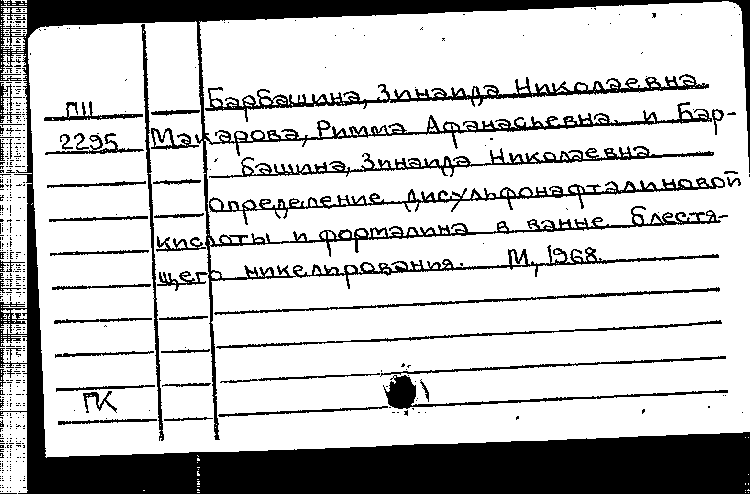 Барбашина, Зинаида Николаевна.
П11
2295 Макарова, Римма Афанасьевна. и Бар-
башина, Зинаида Николаевна.
Определение дисульфонафталиновой
кислоты и формалина в ванне блестя-
щего никелирования. М., 1968.
ГК